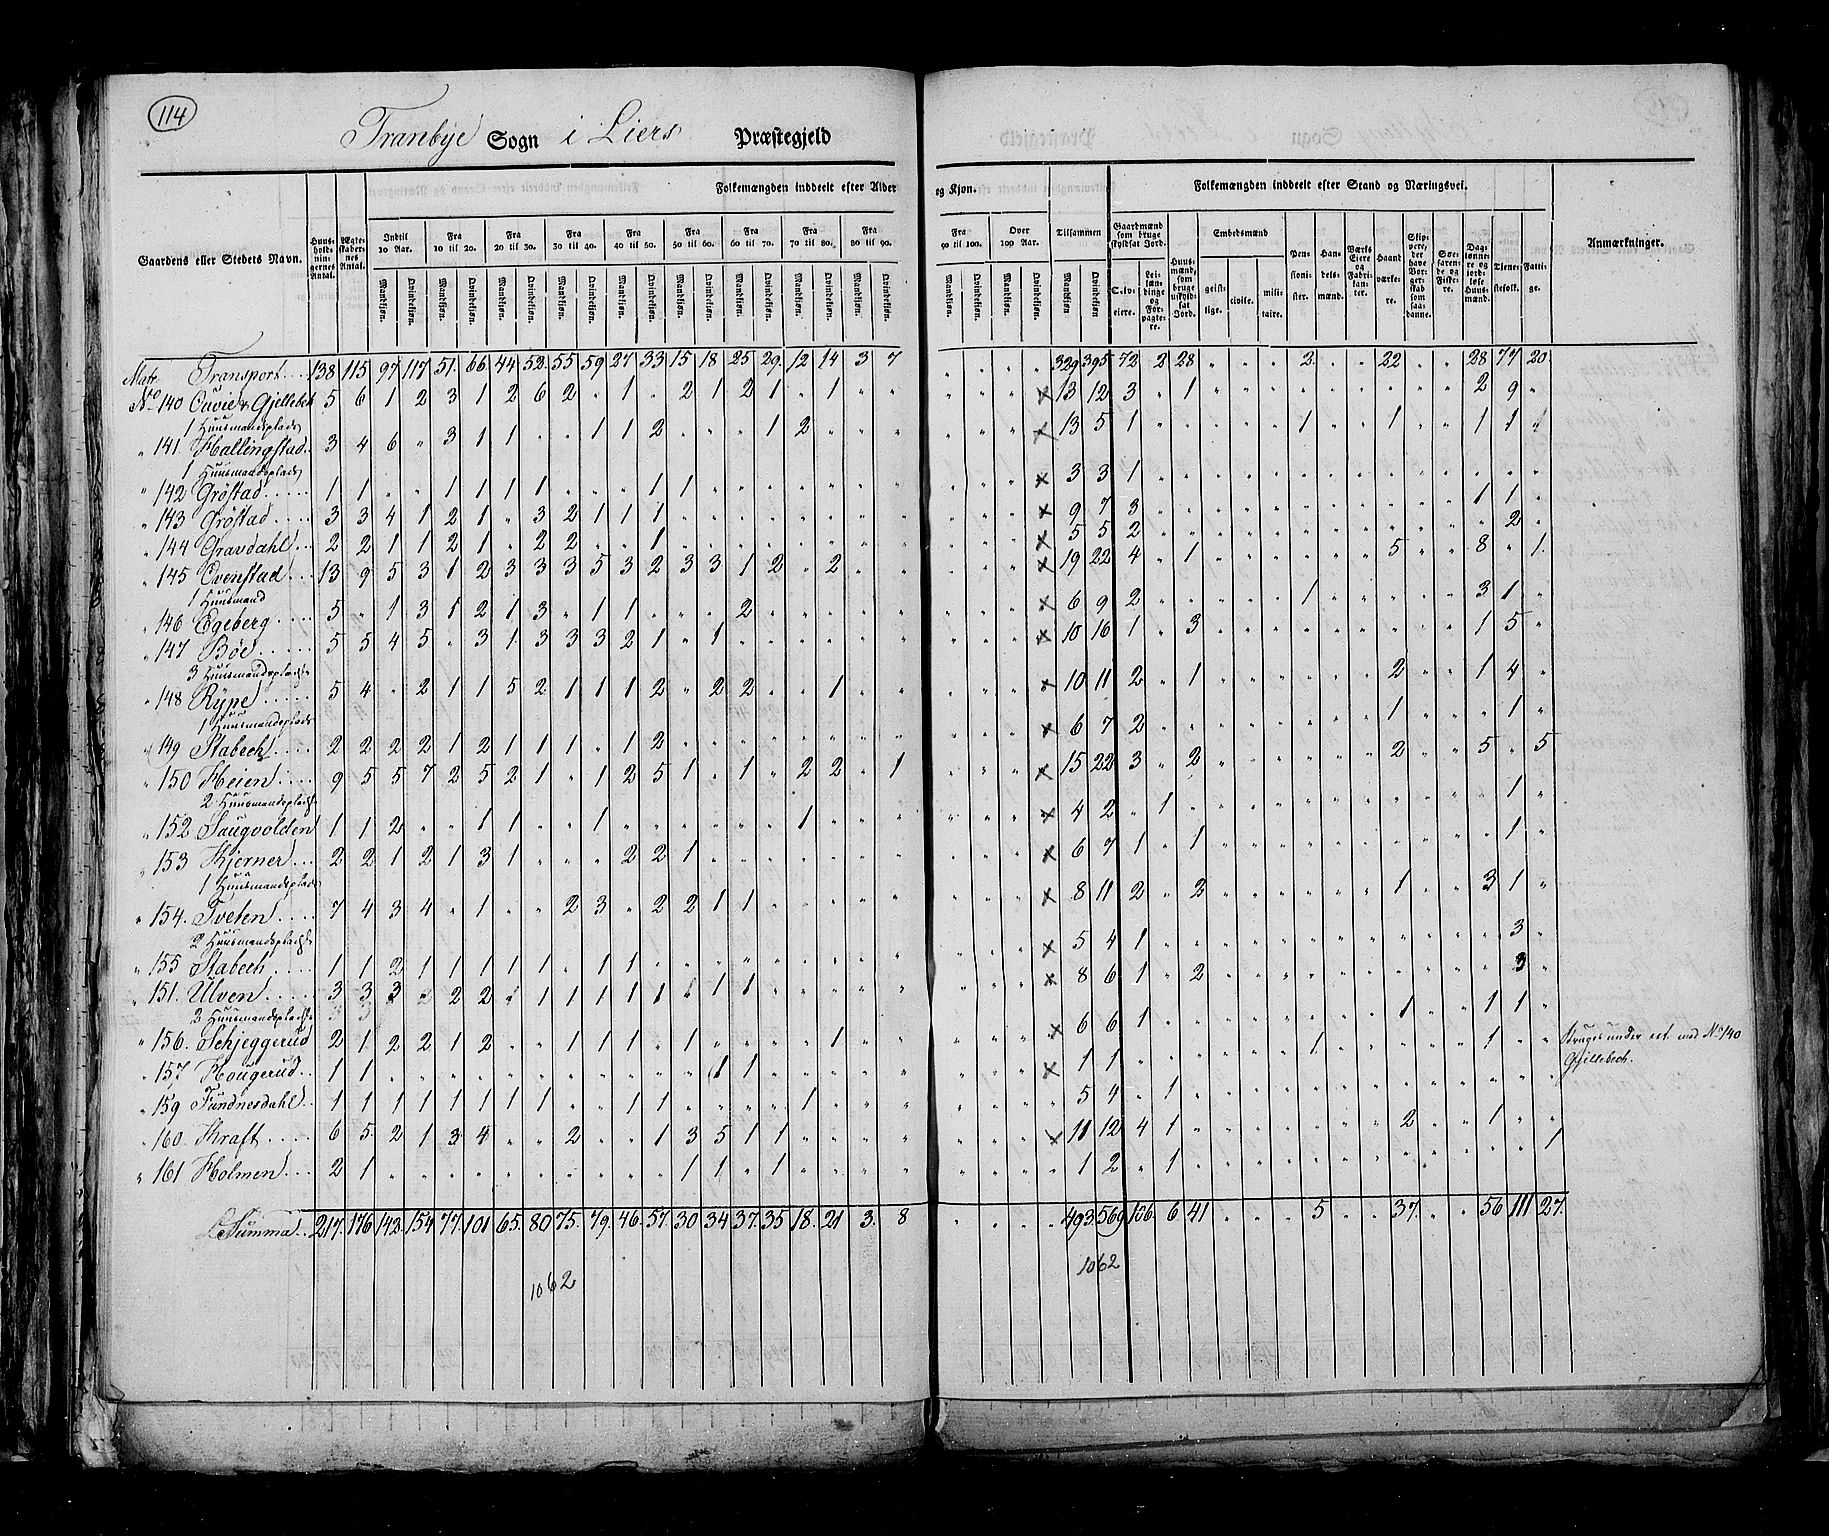 114
Tranbye Sogn i Liers Præstegjeld
Folkemængden inddeelt efter Alder og Kjøn.
Folkemængden inddeelt efter Stand og Næringsvei.
Gaardens eller Stedets Navn.
Huusholdningernes Antal.
Ægteskabernes Antal.
Indtil 10 Aar.
Fra 10 til 20.
Fra 20 til 30.
Fra 30 til 40.
Fra 40 til 50.
Fra 50 til 60.
Fra 60 til 70.
Fra 70 til 80.
Fra 80 til 90.
Fra 90 til 100.
Over 100 Aar.
Tilsammen
Mandkjøn. Qvindekjøn.
Gaardmænd som bruge skyldsat Jord.
Selveiere.
Leilændinge og Forpagtere.
Huusmænd, som bruge uskyldsat Jord.
Embedsmænd
geistlige. civile. militaire.
Pensionister.
Handelsmænd.
Værks Eiere og Fabrikanter.
Haandværkere.
Skippere, der have Borgerskab som saadanne.
Søefarende og Fiskere.
Daglønnere og jordløse Huusmænd.
Tjenestefolk.
Fattige.
Anmærkninger.
Matr. Transport 138 115 97 117 51 66 44 52 55 59 27 33 15 18 25 29 12 14 3 7 329 395 72 2 28 2 22 28 77 20
No 140 Ouvie & Gjellebek 5 6 1 2 3 1 2 6 2 " 1 " 2 1 2 1 " 1 " " × 13 12 3 " 1 2 9 "
1 Huusmandsplads
" 141 Hallingstad 3 4 6 " 3 1 1 " " 1 1 2 " " " 1 2 " " " × 13 5 1 1 1 1 1
1 Huusmandsplads
" 142 Gröstad 1 1 " " 1 1 1 1 " " " 1 1 × 3 3 1
" 143 Gröstad 3 3 4 1 2 1 " 3 2 1 1 1 × 9 7 3 1 1
" 144 Gravdahl 2 2 1 1 2 1 " 2 2 " " 1 × 5 5 2 2
" 145 Evenstad 13 9 5 3 1 2 3 3 3 5 3 2 3 3 1 2 " 2 × 19 22 4 " 1 5 8 " 1
1 Huusmand
" 146 Egeberg 5 " 1 3 1 2 1 3 " 1 1 " " " 2 × 6 9 2 1 3 1
" 147 Böe 5 5 4 5 " 3 1 3 3 3 2 1 " 1 × 10 16 1 " 3 1 5
3 Huusmandspladse
" 148 Rype 5 4 " 2 1 1 5 2 1 1 1 2 " 2 2 " " 1 × 10 11 2 " 1 2 1 4
1 Huusmandsplads
" 149 Stabech 2 2 2 2 1 2 1 1 1 " 1 2 × 6 7 2 1 1
" 150 Heien 9 5 5 7 2 5 2 1 " 1 2 5 1 " 1 " 2 2 " 1 × 15 22 3 " 2 2 5 " 5
2 Huusmandspladse
" 152 Saugvolden 1 1 2 " " 1 1 " " 1 " " " " " " 1 × 4 2 " 1 1
" 153 Kjerner 2 2 1 2 1 3 1 " " " 2 2 1 × 6 7 1 " 1 1
1 Huusmandsplads
" 154 Tveten 7 4 3 4 " 1 " " 2 3 " 2 2 1 1 × 8 11 2 " 2 1 3 1
2 Huusmandspladse
" 155 Stabech 1 1 2 1 1 1 1 1 " 1 1 × 5 4 1 3
" 151 Ulven 3 3 3 " 2 2 " 1 1 1 1 1 " 1 1 × 8 6 1 " 2 3
2 Huusmandspladse
" 156 Schjeggerud 2 1 2 2 1 2 " " 1 1 1 " 1 " " " " 1 × 6 6 1 1 1 1
" 157 Hougerud 1 1 1 1 × 1 1 1 1
" 159 Fundnesdahl 1 1 1 1 1 1 1 1 " " 1 1 " " " " 1 5 4 " 1
" 160 Kraft 6 5 2 1 3 4 " " 2 " " 1 3 5 1 1 × 11 12 4 1 2 1
" 161 Holmen 2 1 1 1 " 1 1 2 " 1 1
No 140
Gjellebech.
Summa 217 176 142 154 77 101 65 80 75 79 46 57 30 34 37 35 18 21 3 8 493 569 106 6 41 5 37 56 111 27
1062
1062